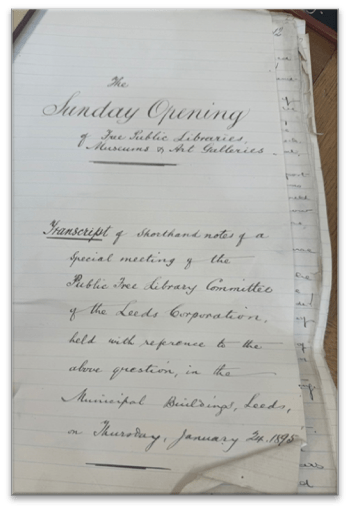 The
Sunday Opening
of Free Public Libraries,
Museums & Art Galleries.
Transcript of Shorthand notes of a
Special meeting of the
Public Free Library Committee
of the Leeds Corporation,
held with reference to the
above question, in the
Municipal Buildings, Leeds,
on Thursday, January 24. 1895